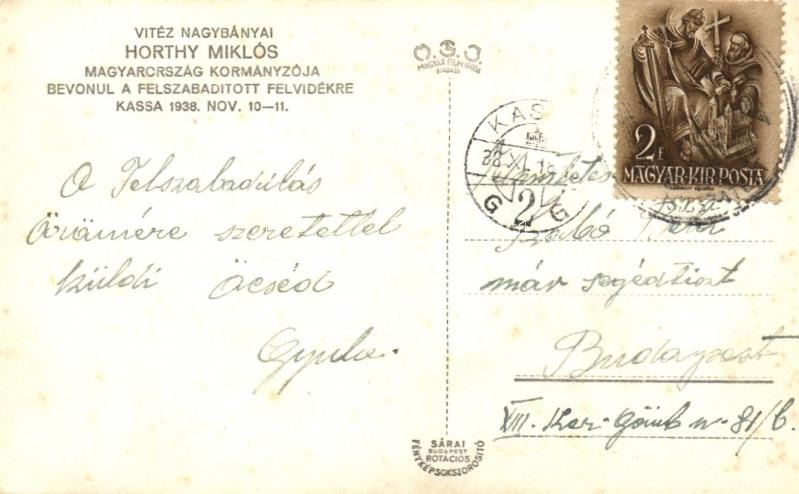 VITÉZ NAGYBÁNYAI
HORTHY MIKLÓS
MAGYARORSZÁG KORMÁNYZÓJA
BEVONUL A FELSZABADITOTT FELVIDÉKRE
KASSA 1938. NOV. 10—11.
A Felszabadulás
örömére szeretettel
küldi Öcséd
Gyula.
MAGYAR FILM IRODA
KIADÁSA
KAS
38 XI.
G 2 G
2 F
MAGYAR·KIR·POSTA
Szabó
máv segédtiszt
Budapest
XIII. Ker. Gömb u. 81/b.
SÁRAI
BUDAPEST
ROTÁCIÓS
FÉNYKÉPSOKSZOROSITÓ